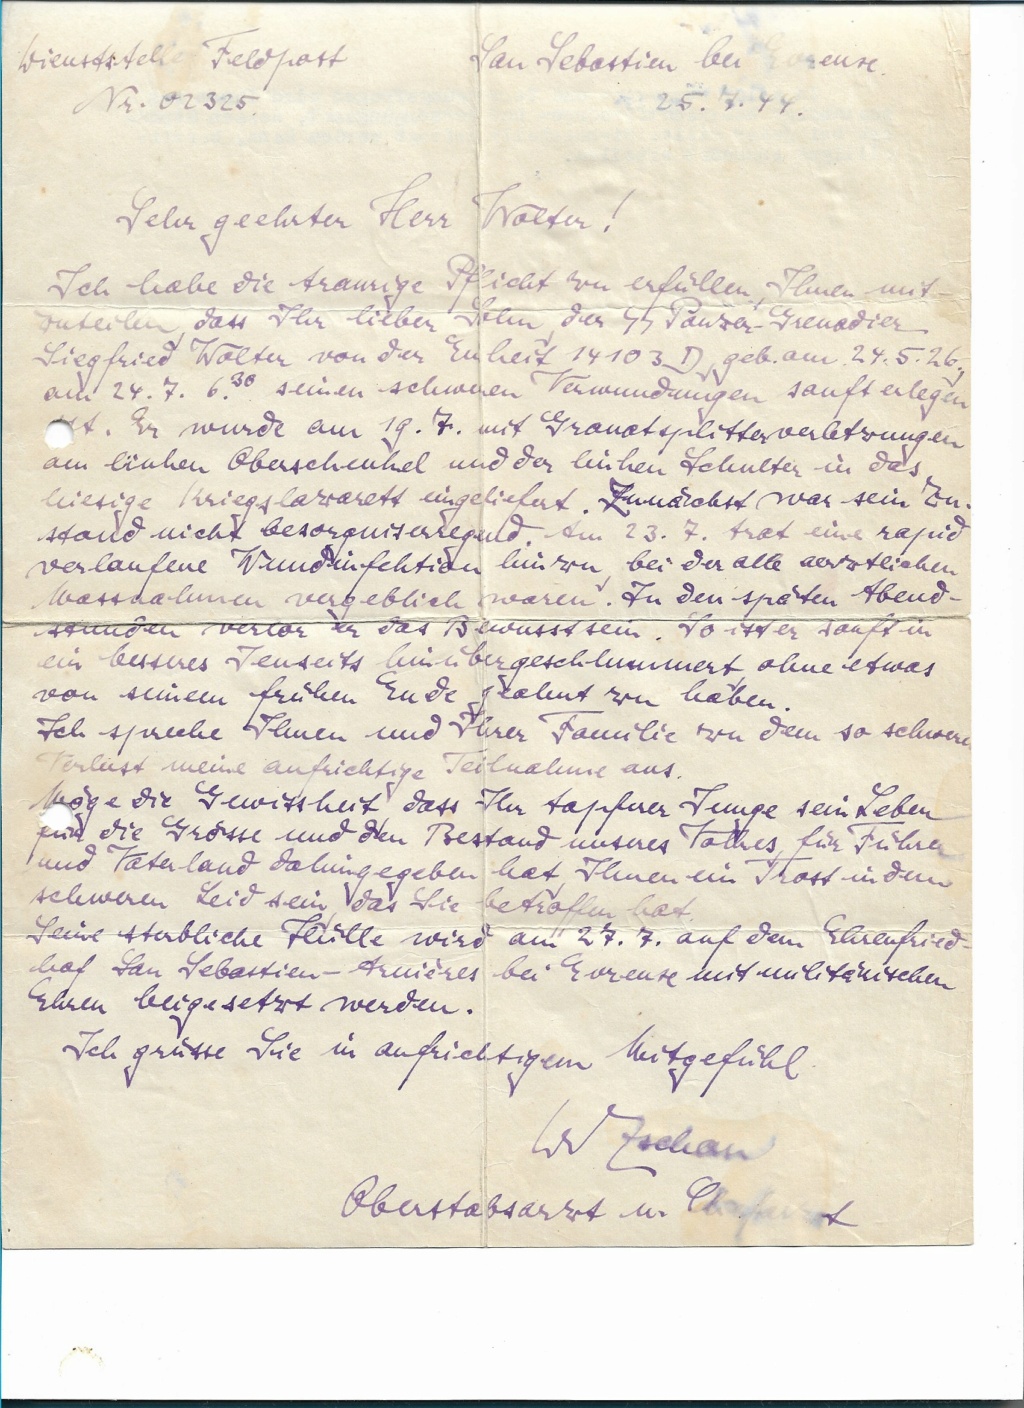 Dienststelle Feldpost
Nr. 02325.
San Sebastien bei Evreuse.
25. 7. 44.
Sehr geehrter Herr Wolter!
Ich habe die traurige Pflicht zu erfüllen, Ihnen mit-
zuteilen, dass Ihr lieber Sohn, der SS Panzer-Grenadier
Siegfried Wolter von der Einheit 14103 D, geb. am 24.5.26.,
am 24. 7. 6.30 seinen schweren Verwundungen sanft erlegen
ist. Er wurde am 19. 7. mit Granatsplitterverletzungen
am linken Oberschenkel und der linken Schulter in das
hiesige Kriegslazarett eingeliefert. Zunächst war sein Zu-
stand nicht besorgniserregend. Am 23. 7. trat eine rapid
verlaufene Wundinfektion hinzu, bei der alle aerztlichen
Massnahmen vergeblich waren. In den späten Abend-
stunden verlor er das Bewusstsein. So ist er sanft in
ein besseres Jenseits hinübergeschlummert ohne etwas
von seinem frühen Ende geahnt zu haben.
Ich spreche Ihnen und Ihrer Familie zu dem so schweren
Verlust meine aufrichtige Teilnahme aus.
Möge die Gewissheit, dass Ihr tapferer Junge sein Leben
für die Grösse und den Bestand unseres Volkes, für Führer
und Vaterland dahingegeben hat, Ihnen ein Trost in dem
schweren Leid sein, das Sie betroffen hat.
Seine sterbliche Hülle wird am 27. 7. auf dem Ehrenfried-
hof San Sebastien-Arnières bei Evreuse mit militärischen
Ehren beigesetzt werden.
Ich grüsse Sie in aufrichtigem Mitgefühl
Oberstabsarzt u. Chefarzt